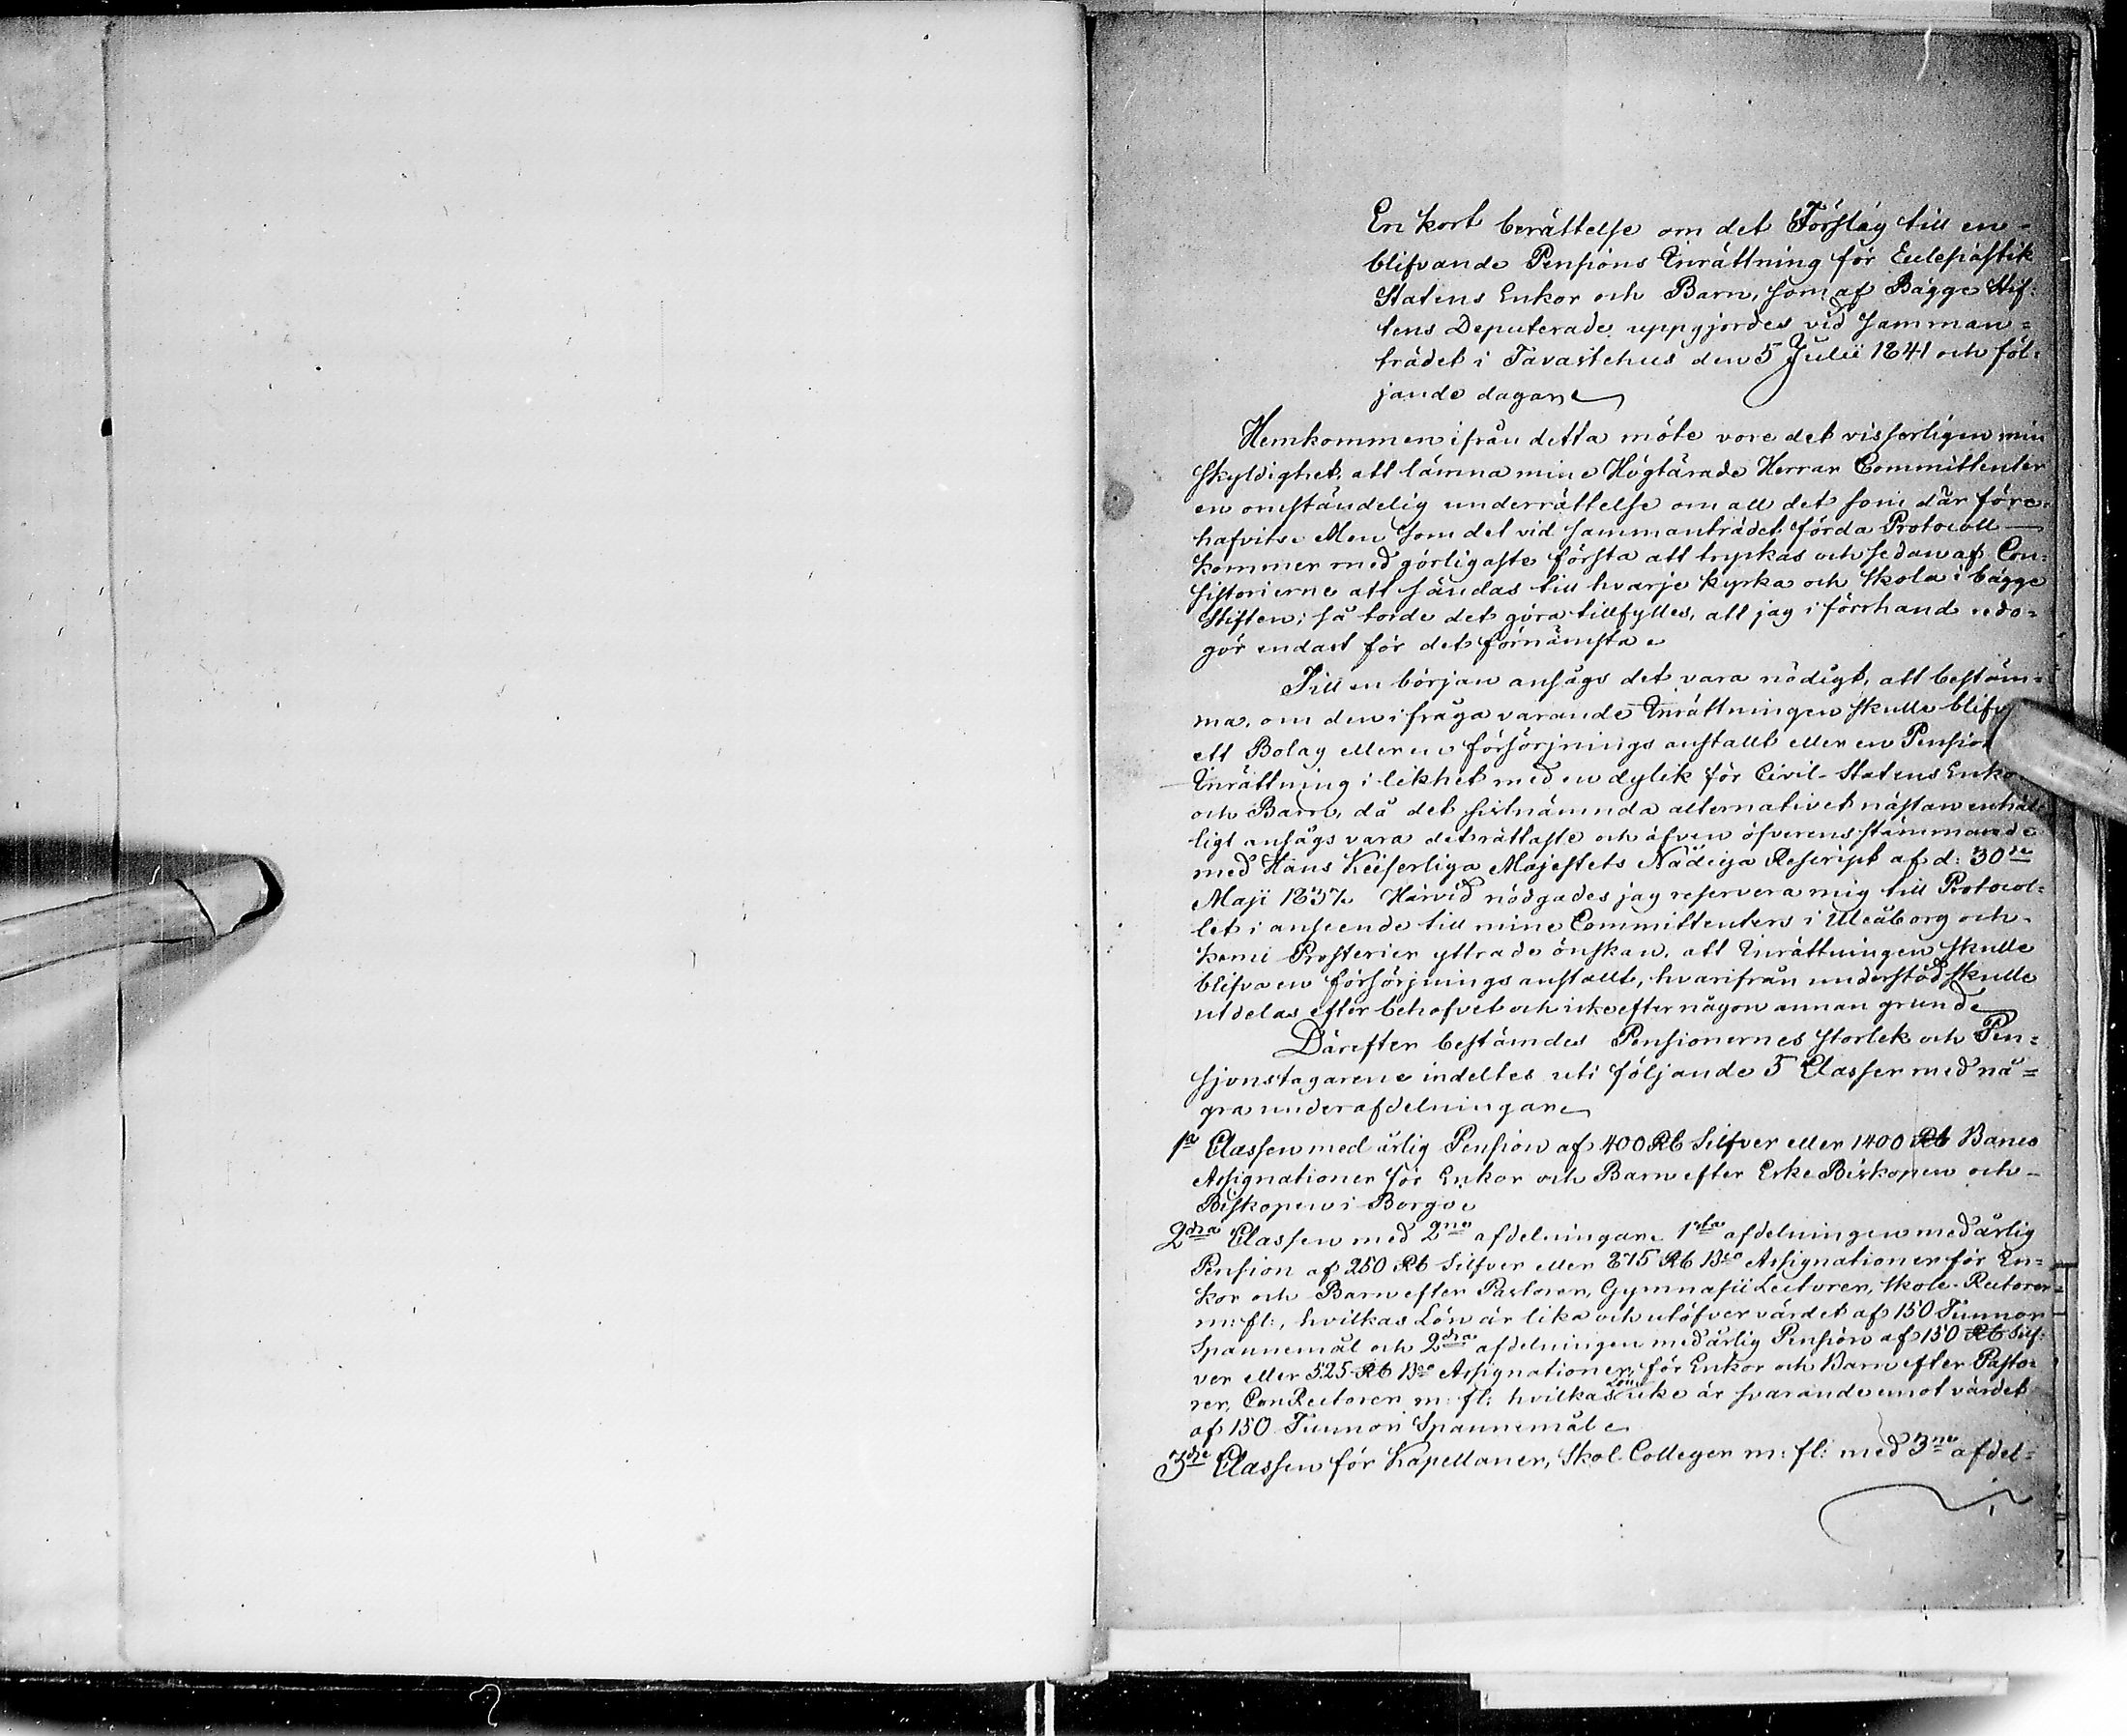 En kort berättelse om det Förslag till en-
blifvande Pensions Inrättning för Eclesiastik
Statens Enkor och Barn, som af Bägge Stif-
tens Deputerade uppgjordes vid samman-
trädet i Tavastehus den 5 Julii 1841 och föl-
jande dagar.
Hemkommen ifrån detta möte vore det visserligen min
skyldighet, att lämna mine Högtärade Herrar Committenter
en omständelig underrättelse om all det som där före-
hafvits. Men som det vid sammanträdet förda Protocoll
kommer med görligaste första att tryckas och sedan af Con-
sistorierne att sändas till hvarje kyrka och Skola i bägge
Stiften; så torde det göra tillfylles, att jag i förrhand redo-
gör endast för det förnämsta.
Till en början ansågs det vara nödigt, att bestäm-
ma, om den ifråga varande Inrättningen skulle blifv
ett Bolag eller en försörjnings anstallt eller en Pension
Inrättning i likhet med en dylik för Civil-Statens Enko
och Barn, då det sistnämnda alternativet nästan enhäl-
ligt ansågs vara det rättaste och äfven öfverensstämmande
med Hans Keiserliga Majestets Nådiga Rescript af d: 30de
Maji 1837. Härvid nödgades jag reservera mig till Protocol-
let i anseende till mine Committenters i Uleåborg och
Kemi Prosterier yttrade önskan, att Inrättningen skulle
blifva en försörjnings anstallt, hvarifrån understöd skulle
utdelas efter behofvet och icke efter någon annan grund.
Därefter bestämdes Pensionernes storlek och Pen-
sjonstagarene indeltes uti följande 5 Classer med nå-
gra underafdelningar.
1a Classen med årlig Pension af 400 Rb Silfver eller 1400 Rb Banco
Assignationer för Enkor och Barn efter Erke Biskopen och
Biskopen i Borgo.
2dra Classen med 2ne afdelningar. 1sta afdelningen med årlig
Pension af 250 Rb Silfver eller 875 Rb Bco Assignationer för En-
kor och Barn efter Pastorer, Gymnasii Lectorer, Skole-Rectorer
m: fl:, hvilkas Lön är lika och utöfver värdet af 150 Tunnor
Spannemål och 2dra afdelningen med årlig Pension af 150 Rb Silf-
ver eller 525 Rb Bco Assignationer, för Enkor och Barn efter Pasto-
rer, Con Rectorer m: fl: hvilkas Lön icke är svarande emot värdet
af 150 Tunnor Spannemål.
3dje Classen för Kapellaner, Skol Colleger m: fl: med 3ne afdel-